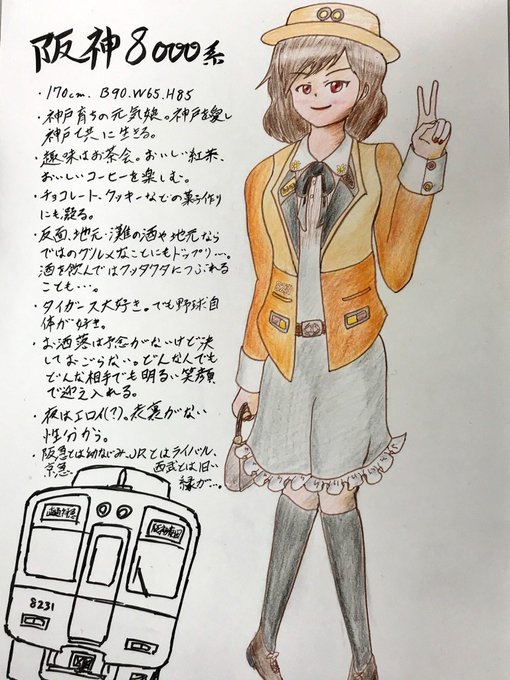 阪神8000系
・170cm. B90.W65.H85
・神戸育ちの元気娘。神戸を愛し
神戸と共に生きる。
・趣味はお茶会。おいしい紅茶、
おいしいコーヒーを楽しむ。
・チョコレート、クッキーなどの菓子作り
にも凝る。
・反面、地元・灘の酒や地元なら
ではのグルメなことにもドップリ…。
酒を飲んではクッタクタにつぶれる
ことも…。
・タイガース大好き。でも野球自
体が好き。
・お洒落は予念がないけど決
しておごらない。どんなんでも
どんな相手でも明るい笑顔
で迎え入れる。
・夜はエロイ(?)。表裏がない
性分から。
・阪急とは幼なじみ、JRとはライバル、
京急、西武とは旧い
縁が…。
8231